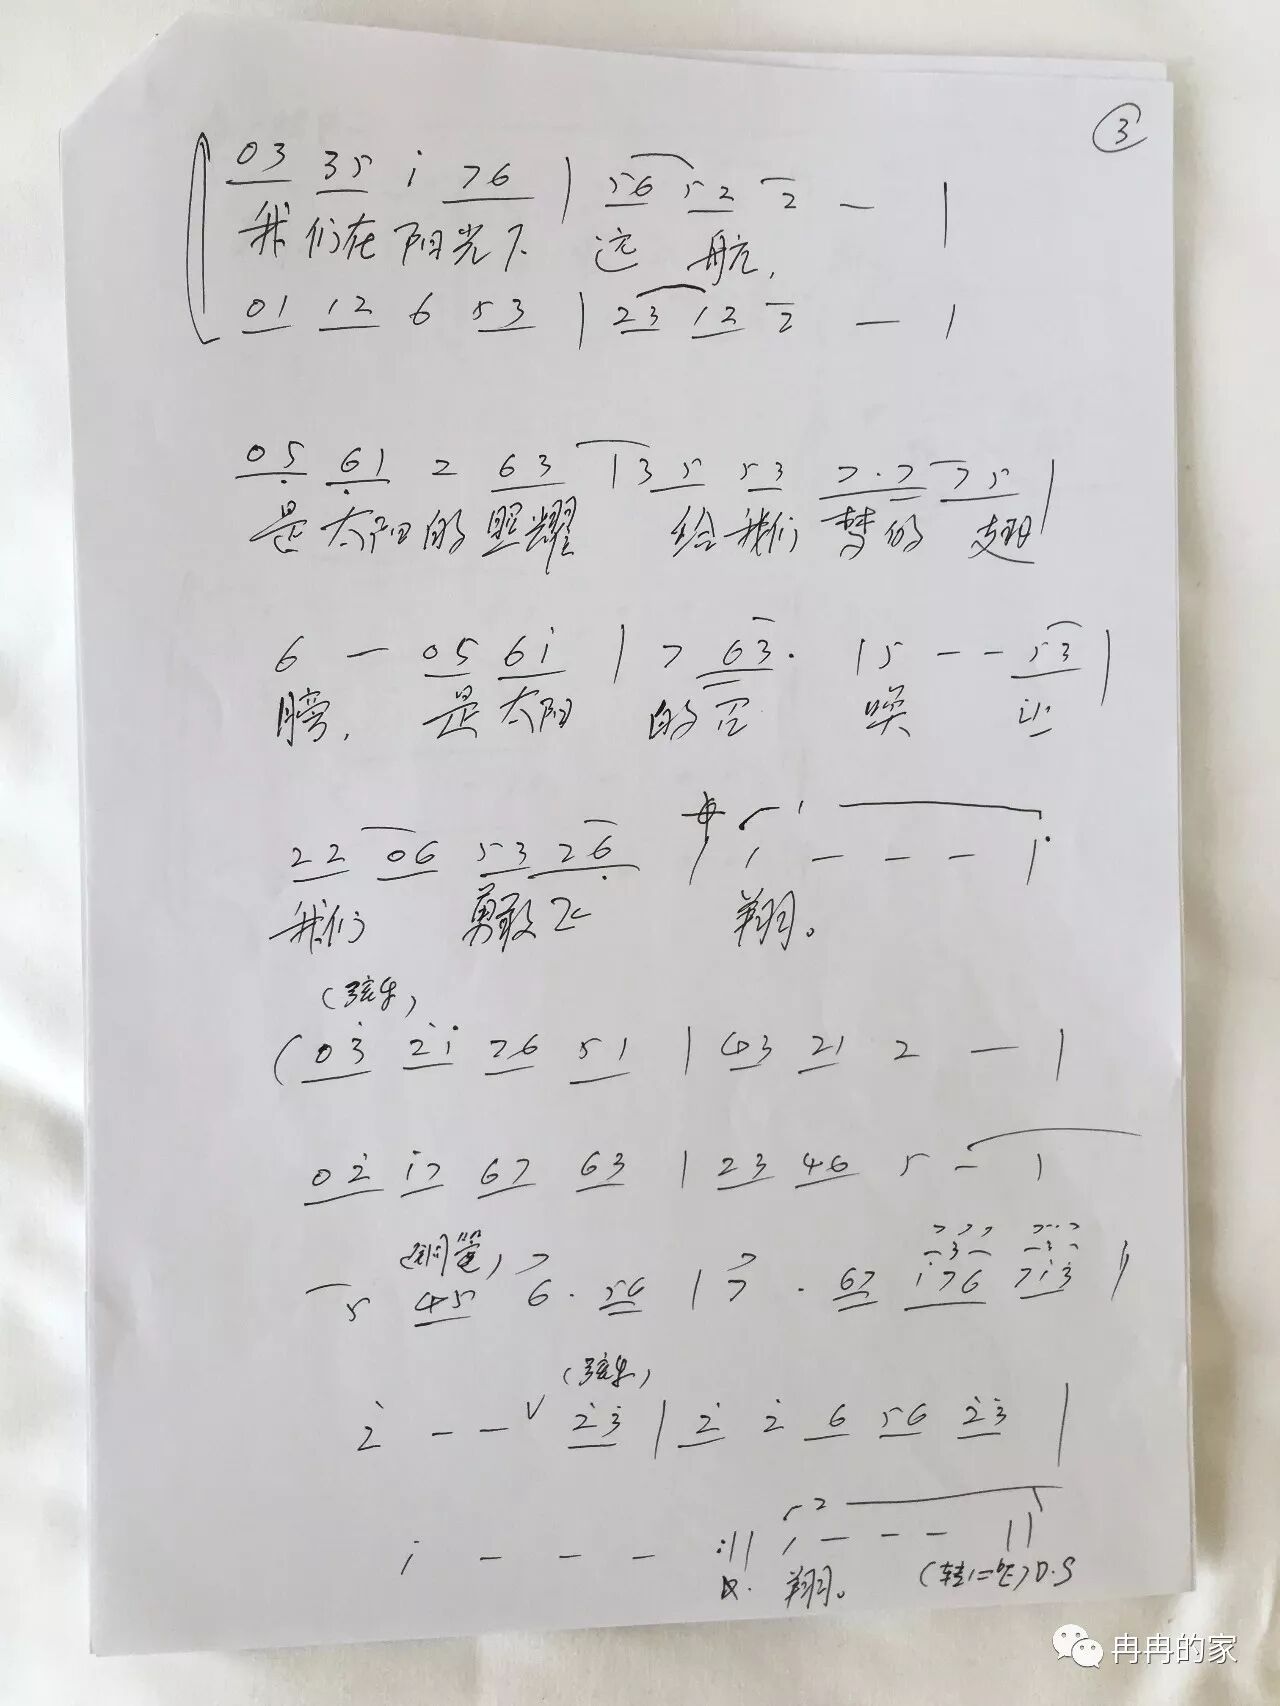 ③
03 35 i 76 | 56 52 2 — |
我们在阳光下 远 航，
01 12 6 53 | 23 12 2 — |
05 61 2 63 | 35 53 7·7 75 |
是太阳的照耀 给我们梦的 翅
6 — 05 6i | 7 63· | 5 - - 53 |
膀， 是太阳 的召 唤 让
22 06 53 26 | 1 - - - |
我们 勇敢飞 翔。
(弦乐)
(03 2i 76 51 | 43 21 2 — |
02 i7 67 63 | 23 46 5 - |
(铜管)
5 45 6· 56 | 7 · 67 i76 7i3 |
(弦乐)
2 - - V 23 | 2 2 6 56 23 |
i - - - :|| 1 - - - ||
飞· 翔。 (转1=♭E) D.S
冉冉的家